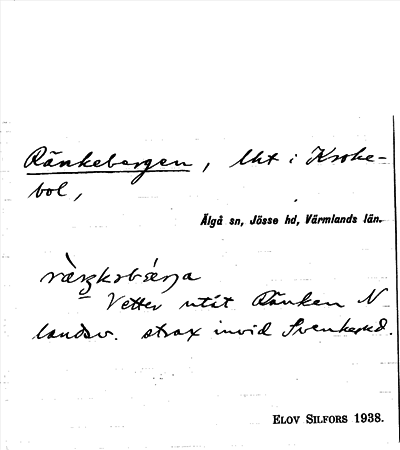 Ränkebergen, lht i Kroke-
bol,
Älgå sn, Jösse hd, Värmlands län.
Vetter utåt Ränken N
landsv. strax invid Svenkerud.
ELOV SILFORS 1938.